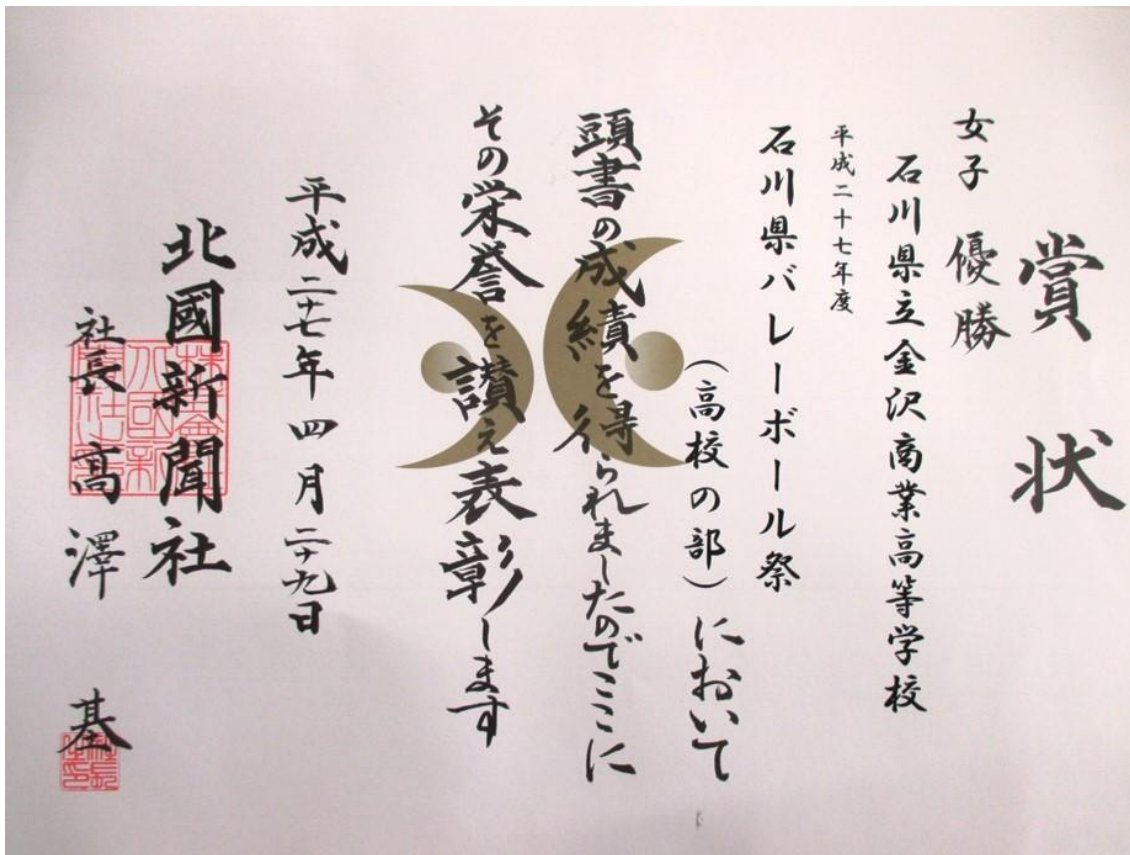 賞状
女子 優勝
石川県立金沢商業高等学校
平成二十七年度
石川県バレーボール祭
(高校の部)において
頭書の成績を得られましたのでここに
その栄誉を讃え表彰します
平成二十七年四月二十九日
北國新聞社
社長 髙澤 基